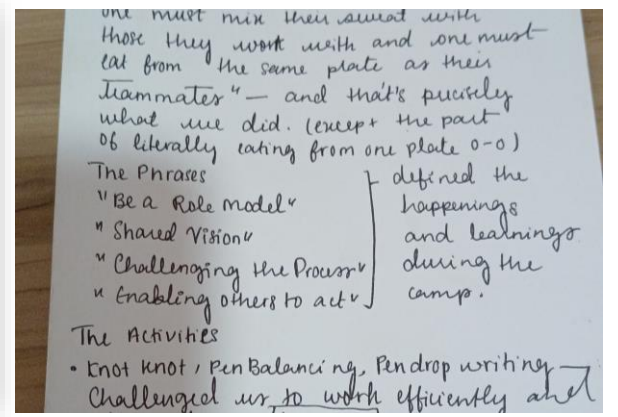 one must mix their sweat with
those they work with and one must
eat from the same plate as their
teammates" — and that's precisely
what we did. (except the part
of literally eating from one plate o-o)
The Phrases
"Be a Role Model"
"Shared Vision"
"Challenging the Process"
"Enabling others to act"
defined the
happenings
and learnings
during the
camp.
The Activities
• Knot knot, Pen Balancing, Pen drop writing
Challenged us to work efficiently and